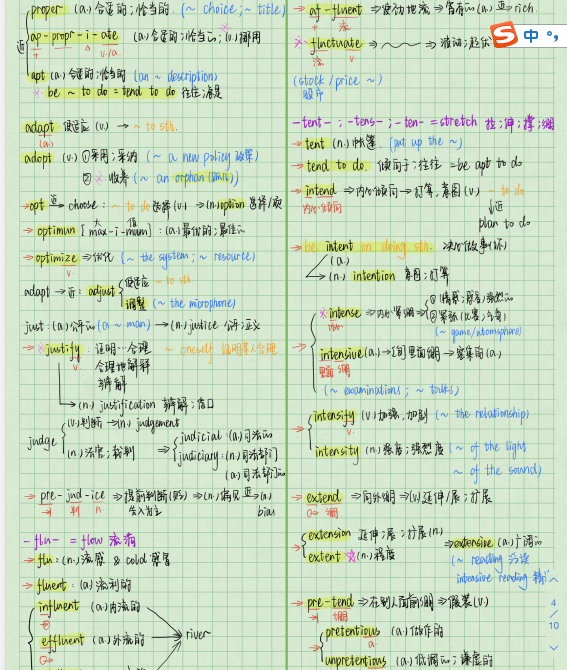 proper (a.) 合适的;恰当的 (~ choice; ~ title)
近
ap-propr-i-ate (a.) 合适的;恰当的; (v.) 挪用
v./a
apt (a.) 合适的;恰当的 (an ~ description)
※ be ~ to do = tend to do 往往;总是
adapt 使适应 (v.) → ~ to sth.
(a.)
adopt (v.) ①采用;采纳 (~ a new policy 政策)
② ※ 收养 (~ an orphan (孤儿))
→ opt 近 choose: ~ to do 选择 (v.) → (n.) option 选择/项
→ optimun [max-i-mum]: (a.) 最优的;最佳的
大 值
→ optimize ⇒ 优化 (~ the system; ~ resource)
v.
adapt → 近: adjust 使适应 ~ to sth
调整 (~ the microphone)
just: (a.) 公正的 (a ~ man) → (n.) justice 公平;正义
→ ※ justify: 证明…合理 ~ oneself 证明某人合理
v. 合理地解释
辩解
→ (n.) justification 辩解;借口
judge (v.) 判断 → (n.) judgement
(n.) 法官;裁判 ⇒ judicial (a.) 司法的
judiciary: (n.) 司法部门
(a.) 司法部门的
→ pre-jud-ice ⇒ 提前判断(形) → (n.) 偏见 近 ⇒ (a.)
判 n 先入为主 bias
-flu- = flow 流淌
→ flu: (n.) 流感 & cold 感冒
→ fluent: (a.) 流利的
influent (a.) 内流的
effluent (a.) 外流的
→ river
→ af-fluent ⇒ 使劲地流 ⇒ 富有的 (a.) 近 ⇒ rich.
+ 流
※ fluctuate → 波动;起伏
流
(stock / price ~)
股市
-tent-; -tens-; -ten- = stretch 拉;伸;撑;绷
→ tent (n.) 帐篷 (put up the ~)
→ tend to do. 倾向于;往往 = be apt to do
→ intend ⇒ 内心倾向 → 打算,意图 (v.) ~ to do
内心倾向 近
plan to do
→ be intent on doing sth.
(a.)
(n.) intention 意图;打算
※ intense ⇒ 内心紧绷
(~ game/atomsphere)
intensive (a.) → 里面绷 → 密集的 (a.)
里面 绷
(~ examinations; ~ talks)
→ intensify (v.) 加强,加剧 (~ the relationship)
v.
intensity (n.) 强度;强烈度 (~ of the light
~ of the sound)
→ extend → 向外绷 → (v.) 延伸/展;扩展
绷
→ extension 延伸;展;扩展 (n.)
extent ☆ (n.) 程度
⇒ extensive (a.) 广阔的
(~ reading 泛读
intensive reading 精
→ pre-tend ⇒ 在别人面前绷 ⇒ 假装 (v.)
绷
pretentious (a.) 做作的
a
unpretentious (a.) 低调的;谦虚的
中
4
/
10